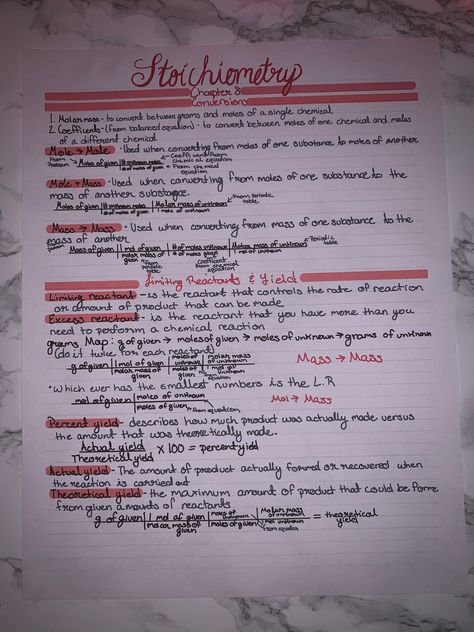 Stoichiometry
Chapter 8
Conversions
1. Molar mass - to convert between grams and moles of a single chemical
2. Coefficents - (from balanced equation) - to convert between moles of one chemical and moles
of a different chemical
Mole → Mole • Used when converting from moles of one substance to moles of another
From problem Moles of given | # unknown moles Coefficents from chemical equation
# of moles of given From chemical equation
Mole → Mass • Used when converting from moles of one substance to the
mass of another substance.
Moles of given | # moles of unknown | Molar mass of unknown from periodic table
# of moles of given | 1 mole of unknown
Mass → Mass • Used when converting from mass of one substance to the
mass of another
Mass of given | 1 mol of given | # of moles unknown | Molar mass of unknown Periodic table
molar mass of given | # of moles given | 1 mol of unknown
From periodic table Coefficient from chemical equation
Limiting Reactants & Yield
Limiting reactant - is the reactant that controls the rate of reaction
or amount of product that can be made
Excess reactant - is the reactant that you have more than you
need to perform a chemical reaction
grams Map: g of given → moles of given → moles of unknown → grams of unknown
(do it twice for each reactant)
g of given | 1 mol of given | moles of unknown | molar mass of unknown Mass → Mass
molar mass of given | moles of given | 1 mol of unknown
from equation
• Which ever has the smallest numbers is the L.R
mol of given | moles of unknown Mol → Mass
moles of given from equation
Percent yield - describes how much product was actually made versus
the amount that was theoretically made.
Actual yield
Theoretical yield x 100 = percent yield
Actual yield - The amount of product actually formed or recovered when
the reaction is carried out
Theoretical yield - the maximum amount of product that could be forme
from given amounts of reactants
g of given | 1 mol of given | moles of unknown | Molar mass of unknown = theoretical yield
molar mass of given | moles of given | 1 mol unknown
from equation